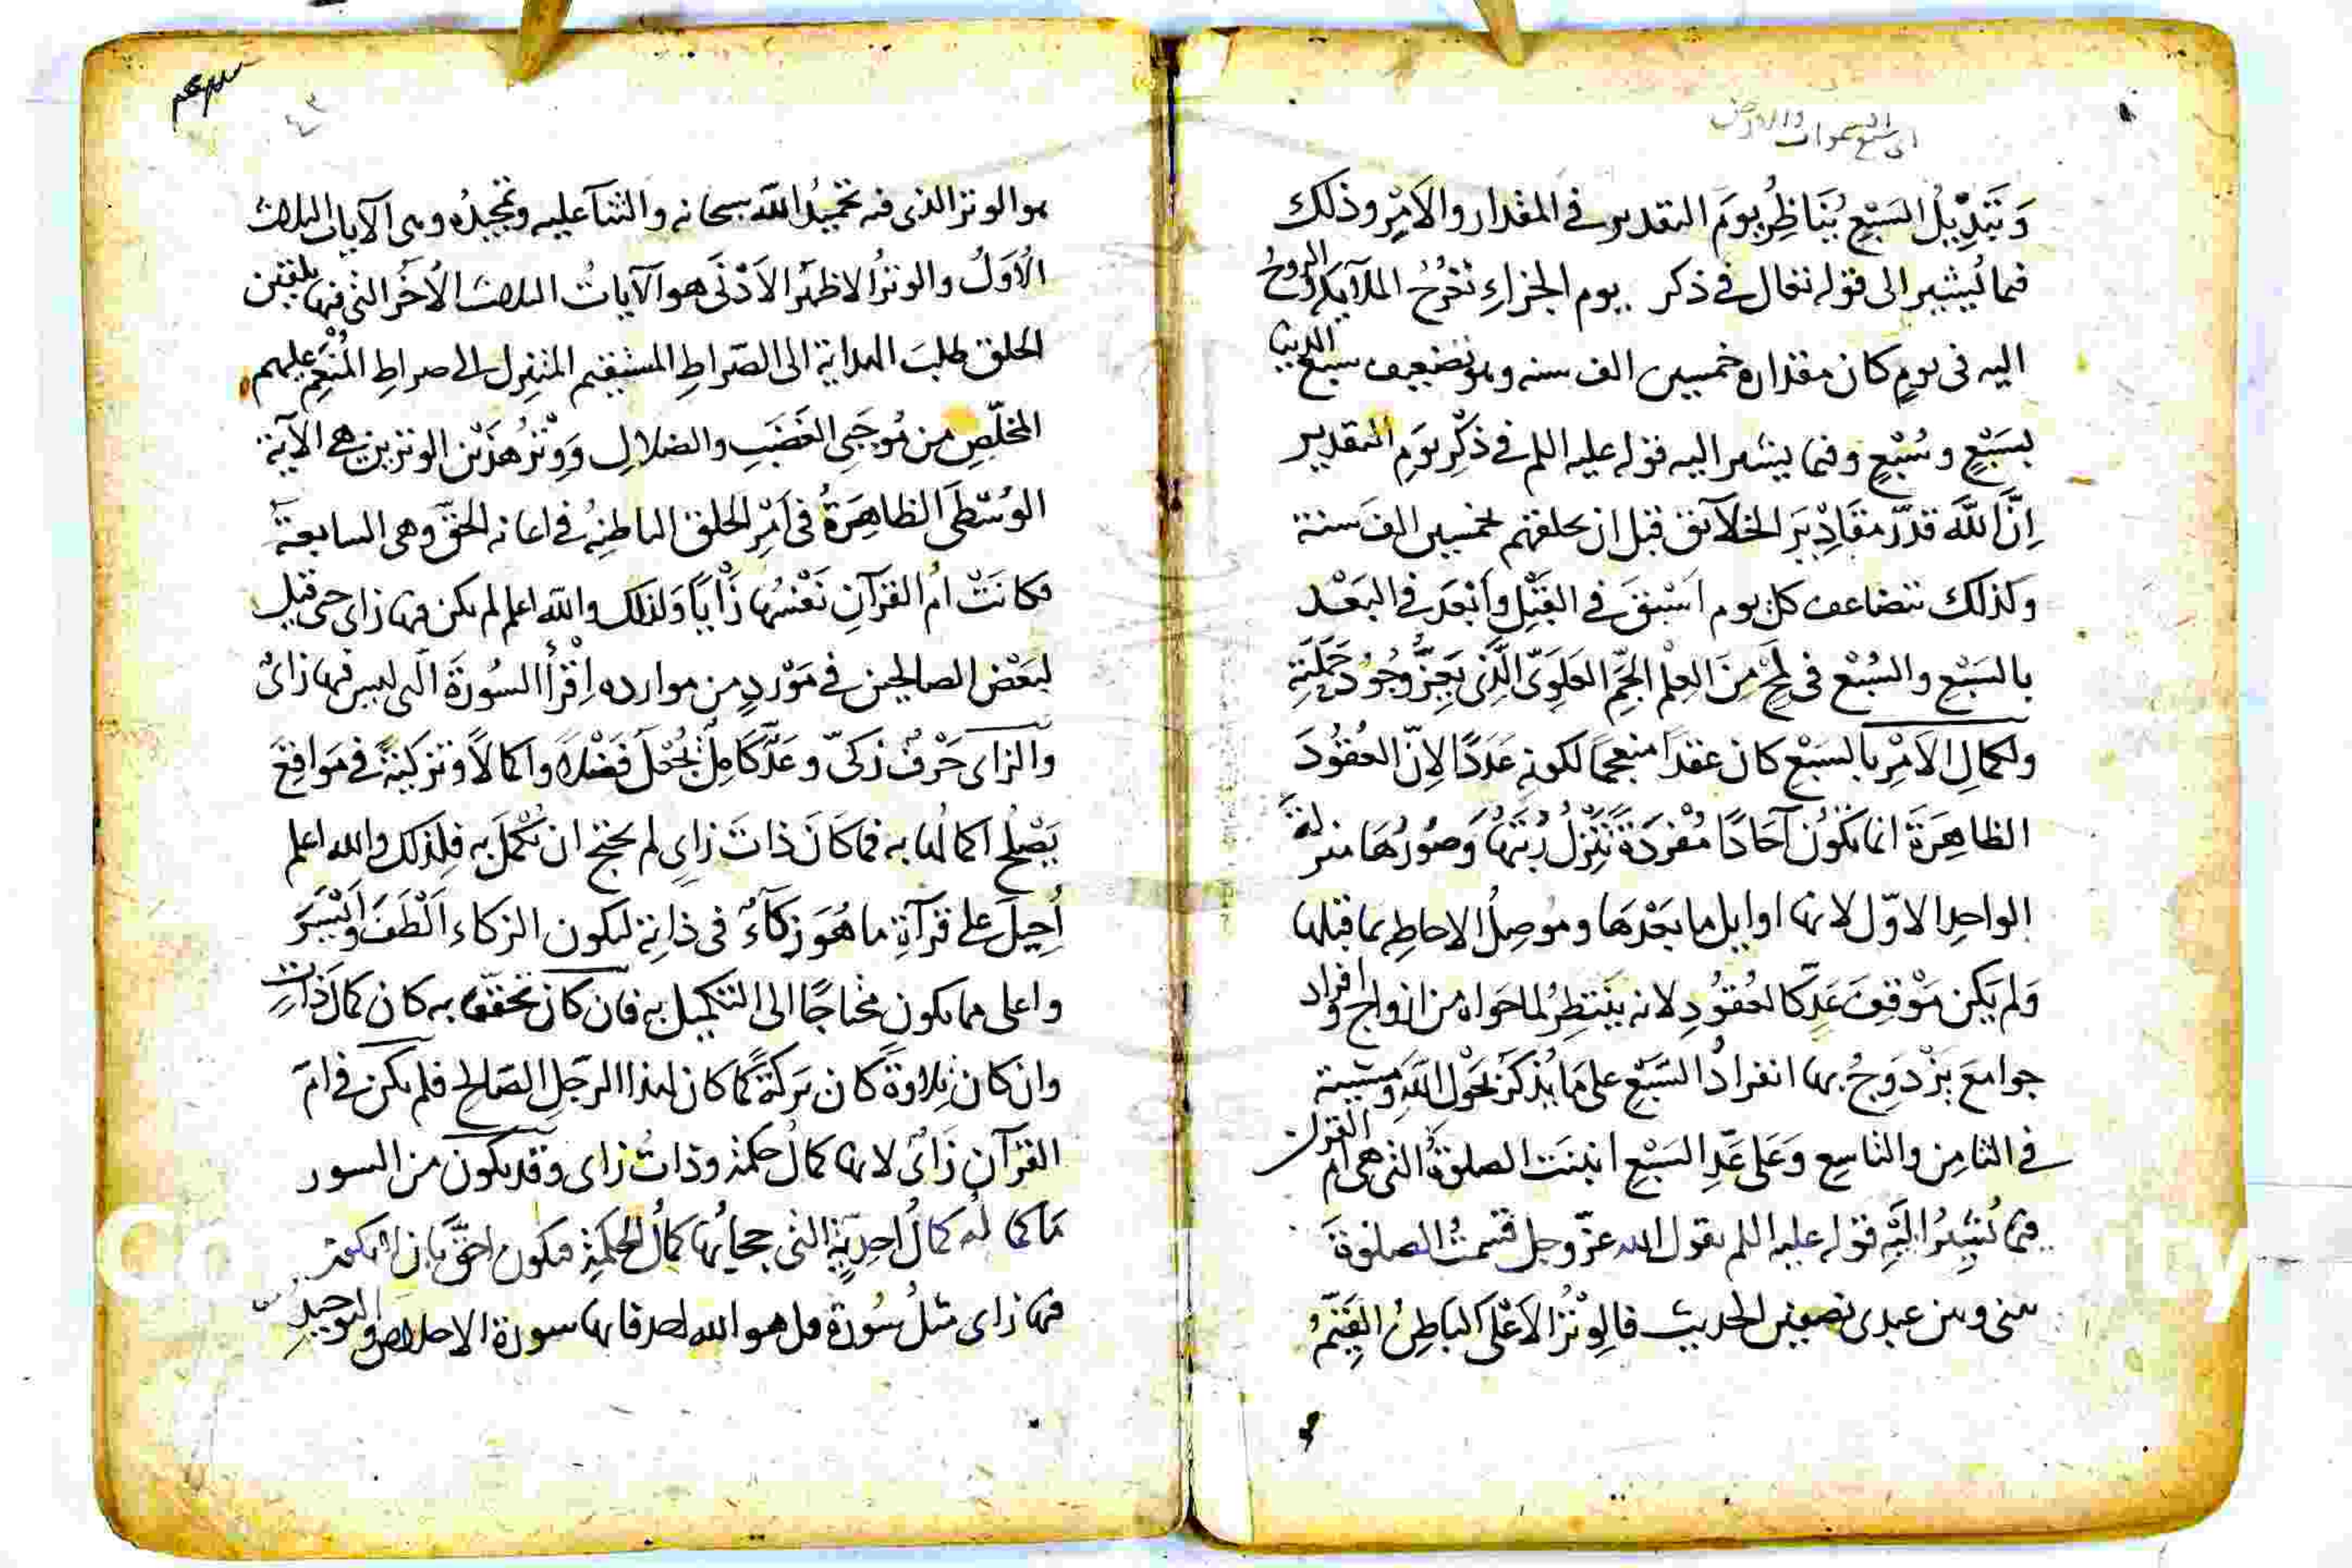 اى سبع السموات والارض
وَتَبْدِيْلُ السَبْعِ يُنَاظِرُ يومَ التقدير في المقدار والاَمْرِ وذلك
فيما يُشير الى قوله تعالى في ذكر يوم الجزاءِ تَعْرُجُ الملآيكة والروحُ
اليه في يومٍ كان مقداره خمسين الف سنه وهو تضعيف سبع
بسَبْعٍ وسُبْعٍ وفيما يشير اليه قوله عليه السلم في ذكْرِ يومِ التقدير
اِنَّ اللَّهَ قدّر مقَادِيْرَ الخلآئق قبل ان يخلقهم بخمسين الفَ سنة
وكذلك يتضاعف كل يوم اَسْبَقَ في القَبْلِ واَبْعَدَ في البَعْد
بالسَبْعِ والسُبْعِ في لَمْحٍ مِنَ العِلْمِ الجَمِّ العَلَوِيّ الَّذِى يَعِزُّ وُجُوْدُ حَمَلَتِهِ
ولكمالِ الاَمْرِ بالسَبْعِ كان عقدًا منعجمًا لكونهِ عَدَدًا لاِنّ العُقُوْدَ
الظاهِرَةَ انما تكُوْنُ آحَادًا مُفْرَدَةً تَتَنَزَّلُ رُتَبُهَا وَصُوَرُهَا منزلةَ
الواحِدِ الاوّل لانها اوايل ما بَعْدَهَا ومُوصِلُ الاحاطه بما قبلها
وَلم يَكن مَوْقِفَ عَدٍّ كالعُقُوْدِ لانه يَنْتَظِرُ لما حَواه من ازواج وافراد
جوامعَ يَزْدَوِجُ بها انفرادُ السَبْعِ على مَا يُذكَرُ بحَوْل اللَّهِ ومشيته
في الثامِنِ والتاسِعِ وَعَلى عَدِّ السَبْعِ انبنَت الصلوةُ التى هى ام القرآن
فيما يُشِيْرُ اِلَيْهِ قوله عليه السلم يقول الله عزّ وجل قسَمتُ الصلوةَ
بينى وبين عبدى نصفين الحديث فالوِتْرُ الاَعْلى الباطِنُ القَيِّمُ
هو الوتر الذى فيه تحميْدُ اللَّه سبحانه والثنآ عليه وتمجيدُه وهى الآيات الثلاث
الأوَلُ والوترُ الاظهَرُ الاَدْنَى هو الآياتُ الثلاث الأخَرُ التى فيها تلقين
الخلق طلبَ الهداية الى الصّراطِ المستقيم المتنزل الى صراطِ المُنْعَمِ عليهم
المخلّصِ من مُوجِبَيِ الغَضَبِ والضلالِ وَوِتْرُ هذَيْن الوترين هى الآية
الوُسْطَى الظاهِرَةُ في اَمْرِ الخلق الباطنهُ في اعانه الحَقّ وهى السابعة
فكانَتْ امُ القُرآنِ نَفْسُهَا زَايًا وَلذلك والله اعلم لم يكن فيها زاى حتى قيل
لبَعْض الصالحين في مَوْرِدٍ من موارده اِقْرأ السُورَةَ التى ليس فيها زاىْ
والزاى حَرْفٌ زكىّ وعَدٌّ كَامِلٌ يُجْعَلُ فَضْلاً واكمالاً وتزكيةً في مَوَاقِعَ
يَصْلُح اكمالُها به فما كَانَ ذاتَ زاىٍ لم يحتج ان تُكْمَلَ به فلِذلك والله اعلم
اُحِيلَ على قرآةِ ما هُوَ زكآءٌ في ذاتِهِ ليكون الزكاء اَلْطَفَ وايْسَرَ
واعلى مما يكون محْتاجًا الى التكميل به فان كان تحققًا به كان كمالَ ذاتٍ
وان كان تِلاوةً كان بَرَكةً كما كان لهذا الرجُلِ الصَالِح فلم يكن في امّ
القُرآن زَاىٌ لانها كمالُ حكمةٍ وذاتُ زاى وقد يكون من السور
مَا كمالُه كمالُ احدِيَّةٍ التى حجابُها كمالُ الحكمةِ فيكون احقَّ بان لا يكون
فيها زاى مثلُ سُورة قل هو الله احد فانها سورة الاخلاص والتوحيدِ